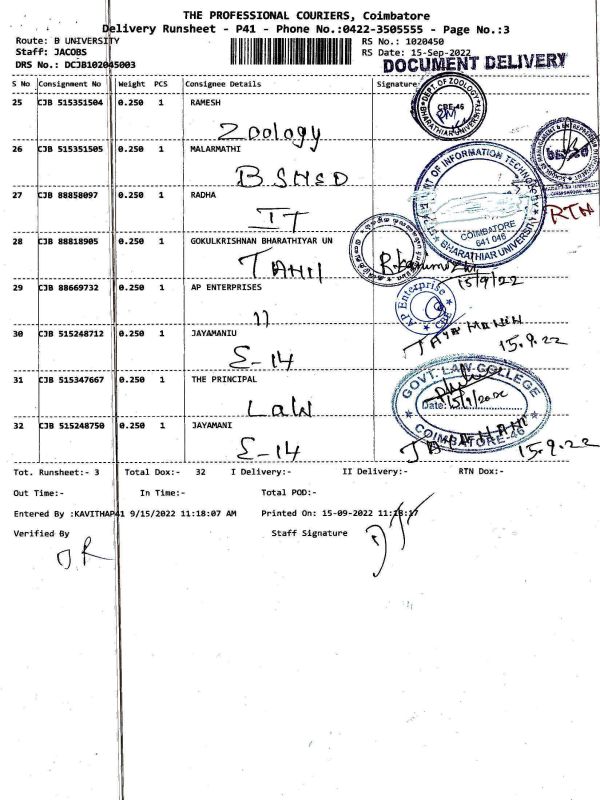 THE PROFESSIONAL COURIERS, Coimbatore
Delivery Runsheet - P41 - Phone No.:0422-3505555 - Page No.:3
Route: B UNIVERSITY
RS No.: 1020450
Staff: JACOBS
RS Date: 15-Sep-2022
DRS No.: DCJB102045003
DOCUMENT DELIVERY
S No Consignment No Weight PCS Consignee Details Signature
DEPT. OF ZOOLOGY
CBE-46
BHARATHIAR UNIVERSITY
25 CJB 515351504 0.250 1 RAMESH
Zoology
26 CJB 515351505 0.250 1 MALARMATHI
BSMED
27 CJB 88858097 0.250 1 RADHA
IT
OF INFORMATION TECHNOLOGY
COIMBATORE
641 046
BHARATHIAR UNIVERSITY
28 CJB 88818905 0.250 1 GOKULKRISHNAN BHARATHIYAR UN
TAMIL
15/9/22
29 CJB 88669732 0.250 1 AP ENTERPRISES
11
AP Enterprise
CBE
30 CJB 515248712 0.250 1 JAYAMANIU
E-14
15.9.22
31 CJB 515347667 0.250 1 THE PRINCIPAL
Law
GOVT. LAW COLLEGE
Date:
COIMBATORE-46
32 CJB 515248750 0.250 1 JAYAMANI
E-14
JAYAMANI
15.9.22
Tot. Runsheet:- 3 Total Dox:- 32 I Delivery:- II Delivery:- RTN Dox:-
Out Time:- In Time:- Total POD:-
Entered By :KAVITHAP41 9/15/2022 11:18:07 AM Printed On: 15-09-2022 11:18:17
Verified By Staff Signature